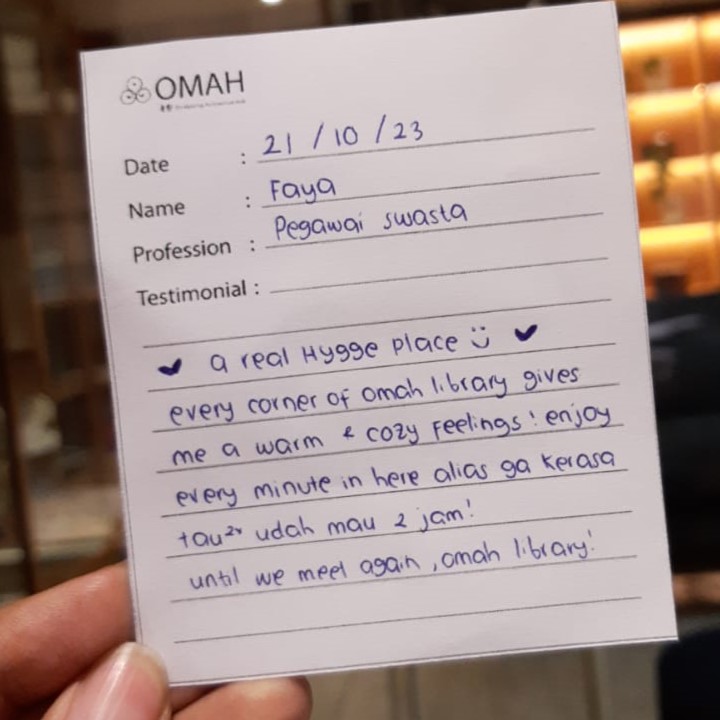 OMAH
Date : 21 / 10 / 23
Name : Faya
Profession : Pegawai swasta
Testimonial :
♥ a real Hygge place ü ♥
every corner of omah library gives
me a warm & cozy feelings! enjoy
every minute in here alias ga kerasa
tau²² udah mau 2 jam!
until we meet again, omah library!